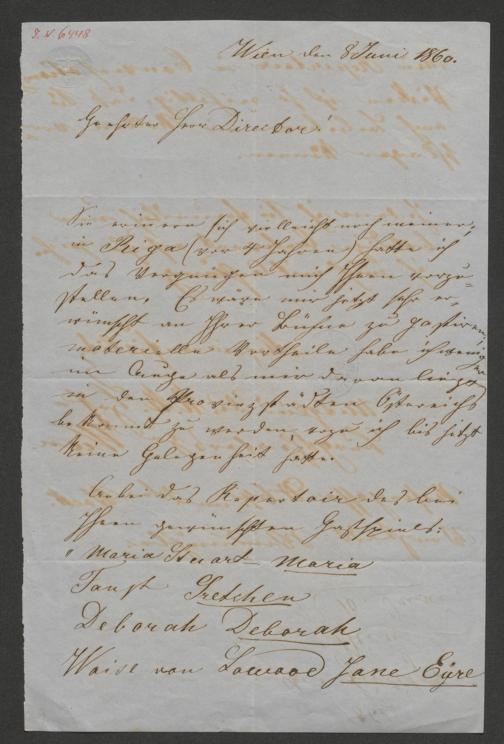 J. N. 6448
Wien den 8 Juni 1860.
Geehrter Herr Director!
Sie erinern sich vielleicht noch meiner,
in Riga (vor 4 Jahren) hatte ich
das Vergnügen mich Ihnen vorzu-
stellen. Es wäre mir jetzt sehr er-
wünscht an Ihrer Bühne zu gastiren,
materielle Vortheile habe ich weniger
im Auge als mir daran liegt
in den Provinzstädten Östereichs
bekannt zu werden, wozu ich bis jetzt
keine Gelegenheit hatte.
Anbei das Repertoir des bei
Ihnen gewünschten Gastspiels:
Maria Stuart Maria
Faust Gretchen
Deborah Deborah
Waise von Lowood Jane Eyre